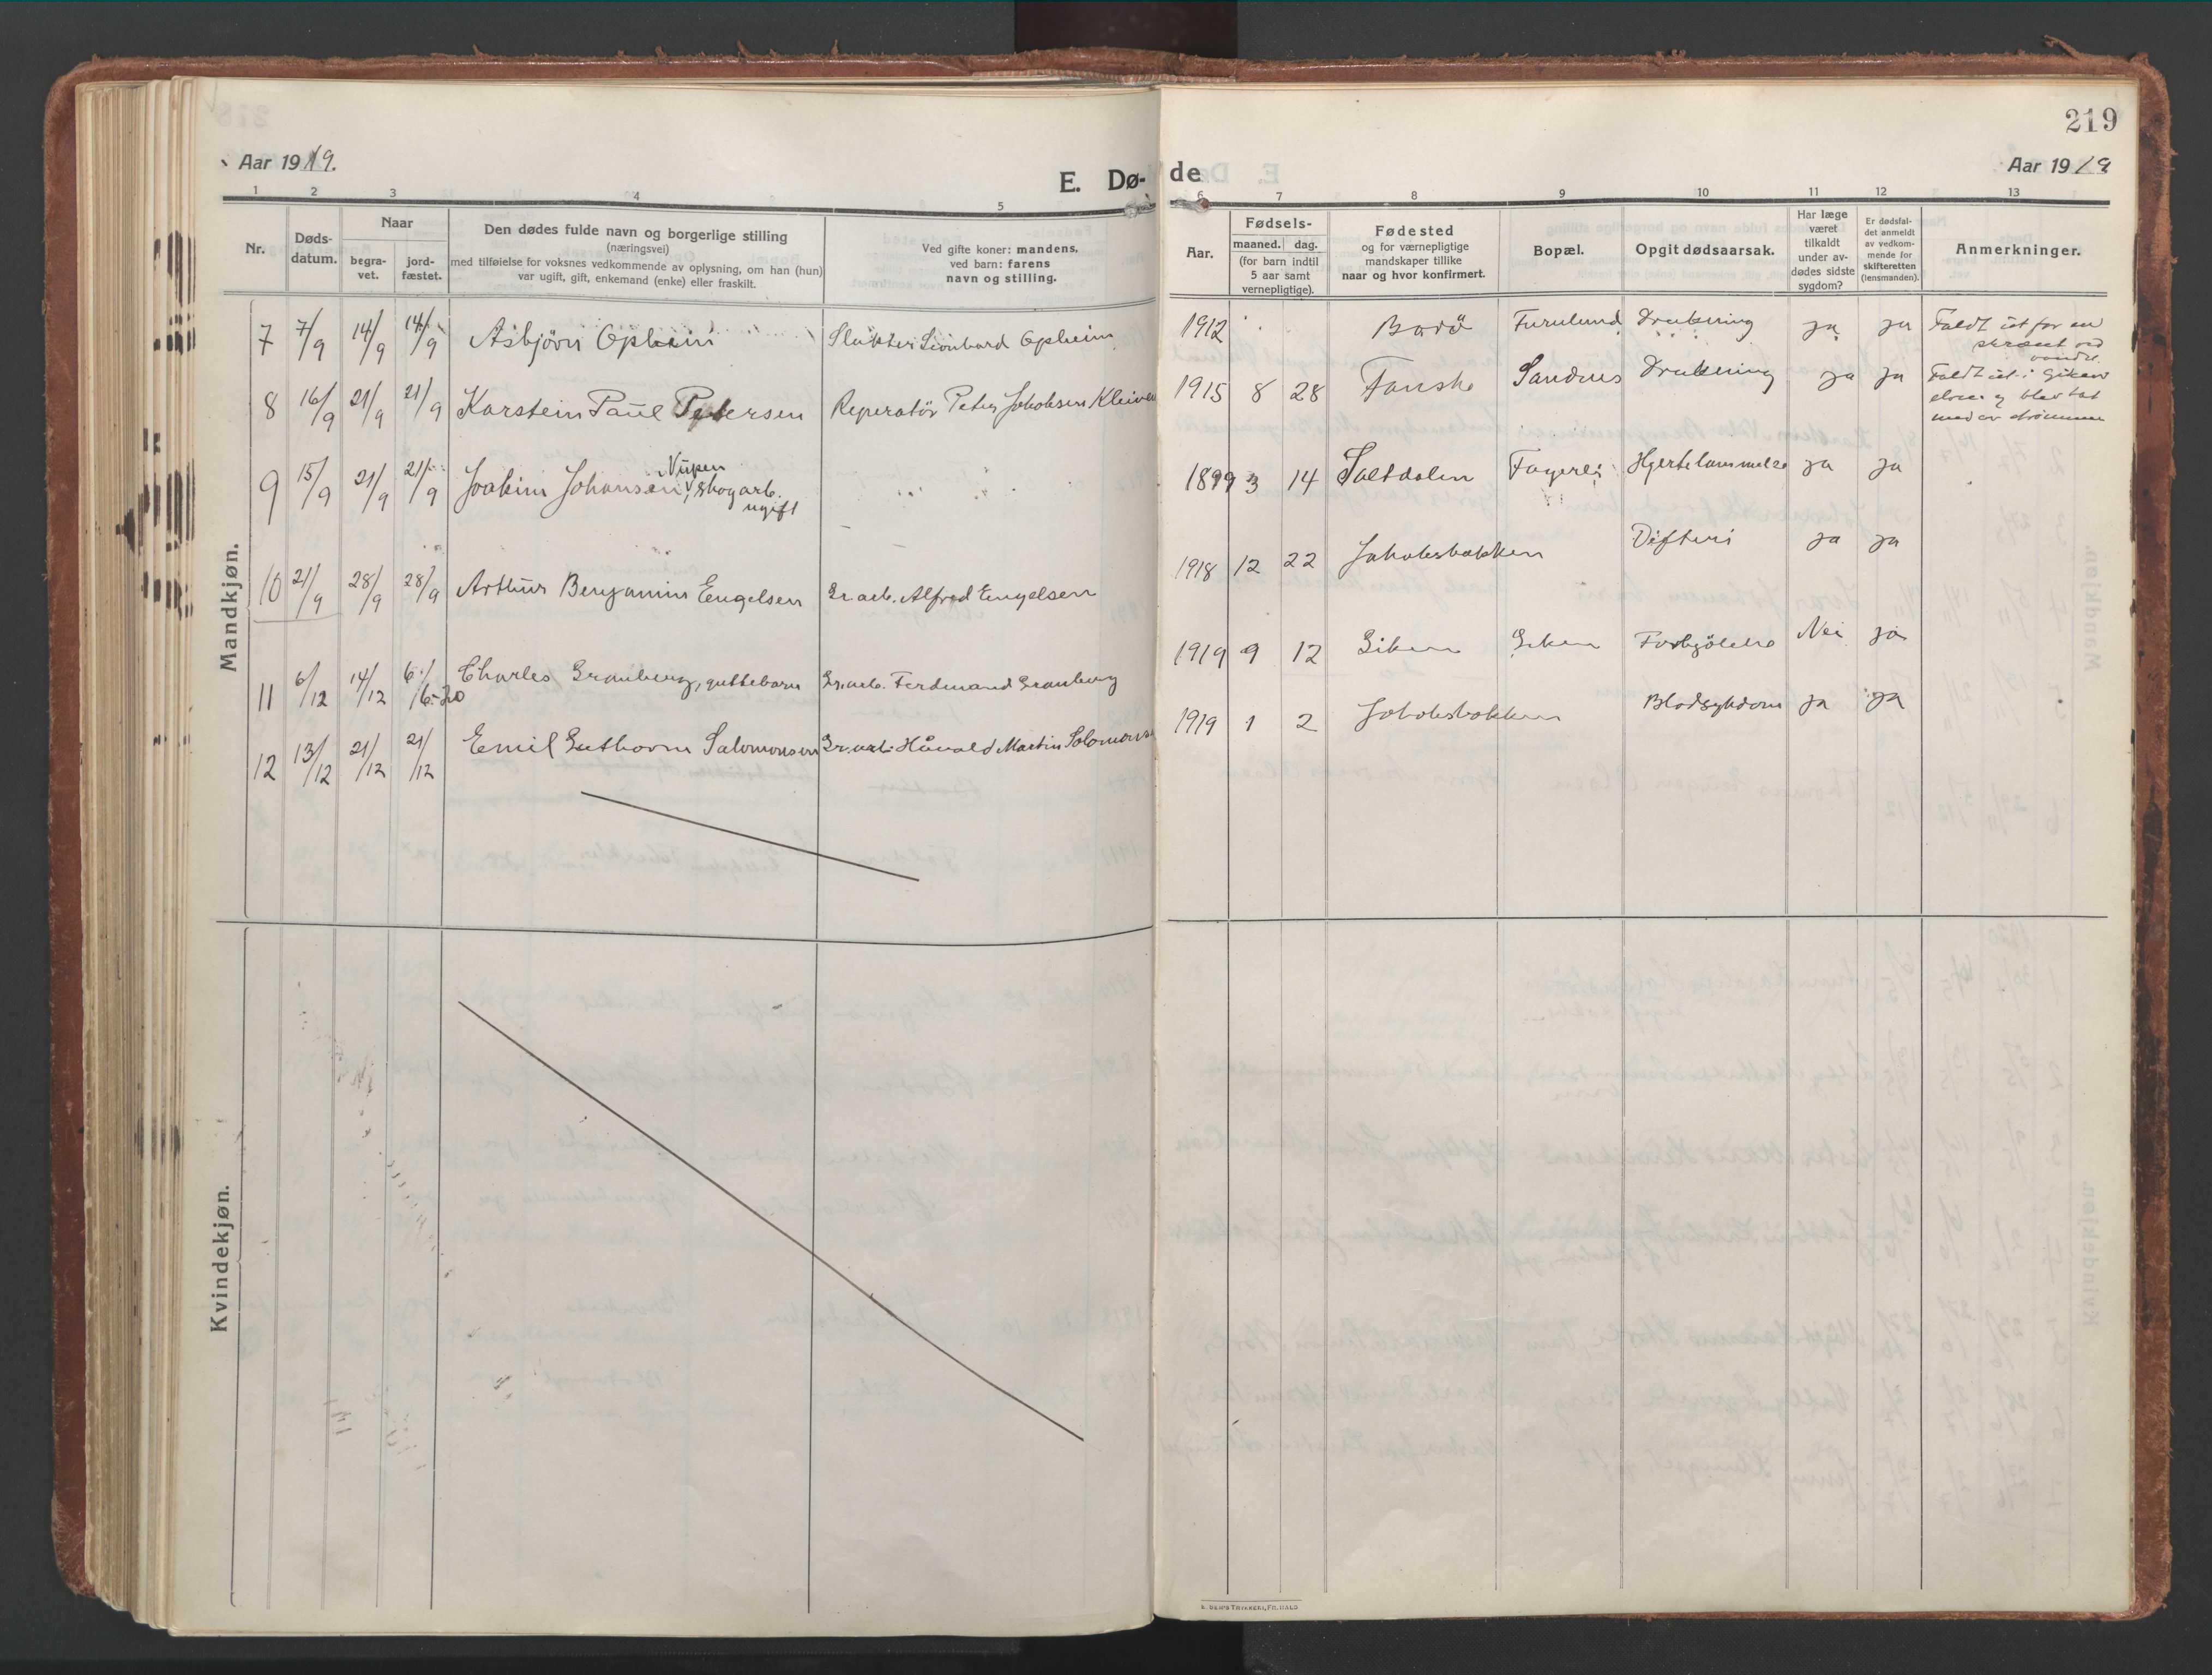 219
Aar 1919.
E. Dø-
de
Aar 1919
1 2 3 4 5 6 7 8 9 10 11 12 13
Nr.
Døds-
datum.
Naar
begra-
vet.
jord-
fæstet.
Den dødes fulde navn og borgerlige stilling
(næringsvei)
med tilføielse for voksnes vedkommende av oplysning, om han (hun)
var ugift, gift, enkemand (enke) eller fraskilt.
Ved gifte koner: mandens,
ved barn: farens
navn og stilling.
Aar.
Fødsels-
maaned. dag.
(for barn indtil
5 aar samt
vernepligtige).
Fødested
og for værnepligtige
mandskaper tillike
naar og hvor konfirmert.
Bopæl.
Opgit dødsaarsak.
Har læge
været
tilkaldt
under av-
dødes sidste
sygdom?
Er dødsfal-
det anmeldt
av vedkom-
mende for
skifteretten
(lensmanden).
Anmerkninger.
Mandkjøn.
7 7/9 14/9 14/9 Asbjörn Opheim Slakter Leonhard Opheim 1912 Bodö Furulund Drukning ja ja Faldt ut for en
skrænt ved
vandet.
8 16/9 21/9 21/9 Karstein Paul Petersen Reperatör Peter Jakobsen Kleiven 1915 8 28 Fauske Sandnes Drukning ja ja Faldt ut i Giken
elven og blev tat
med av strömmen
9 15/9 21/9 21/9 Joakim Johansen Nupen, skogarb.
ugift
1899 3 14 Saltdalen Fagerli Hjertelammelse ja ja
10 21/9 28/9 28/9 Arthur Benjamin Engelsen Gr. arb. Alfred Engelsen 1918 12 22 Jakobsbakken Difteri ja ja
11 6/12 14/12 6/6-20 Charles Granberg, guttebarn Gr. arb. Ferdinand Granberg 1919 9 12 Giken Giken Forkjölelse Nei ja
12 13/12 21/12 21/12 Emil Guthorm Salomonsen Gr. arb. Håvald Martin Solomonsen 1919 1 2 Jakobsbakken Blodsykdom ja ja
Kvindekjøn.